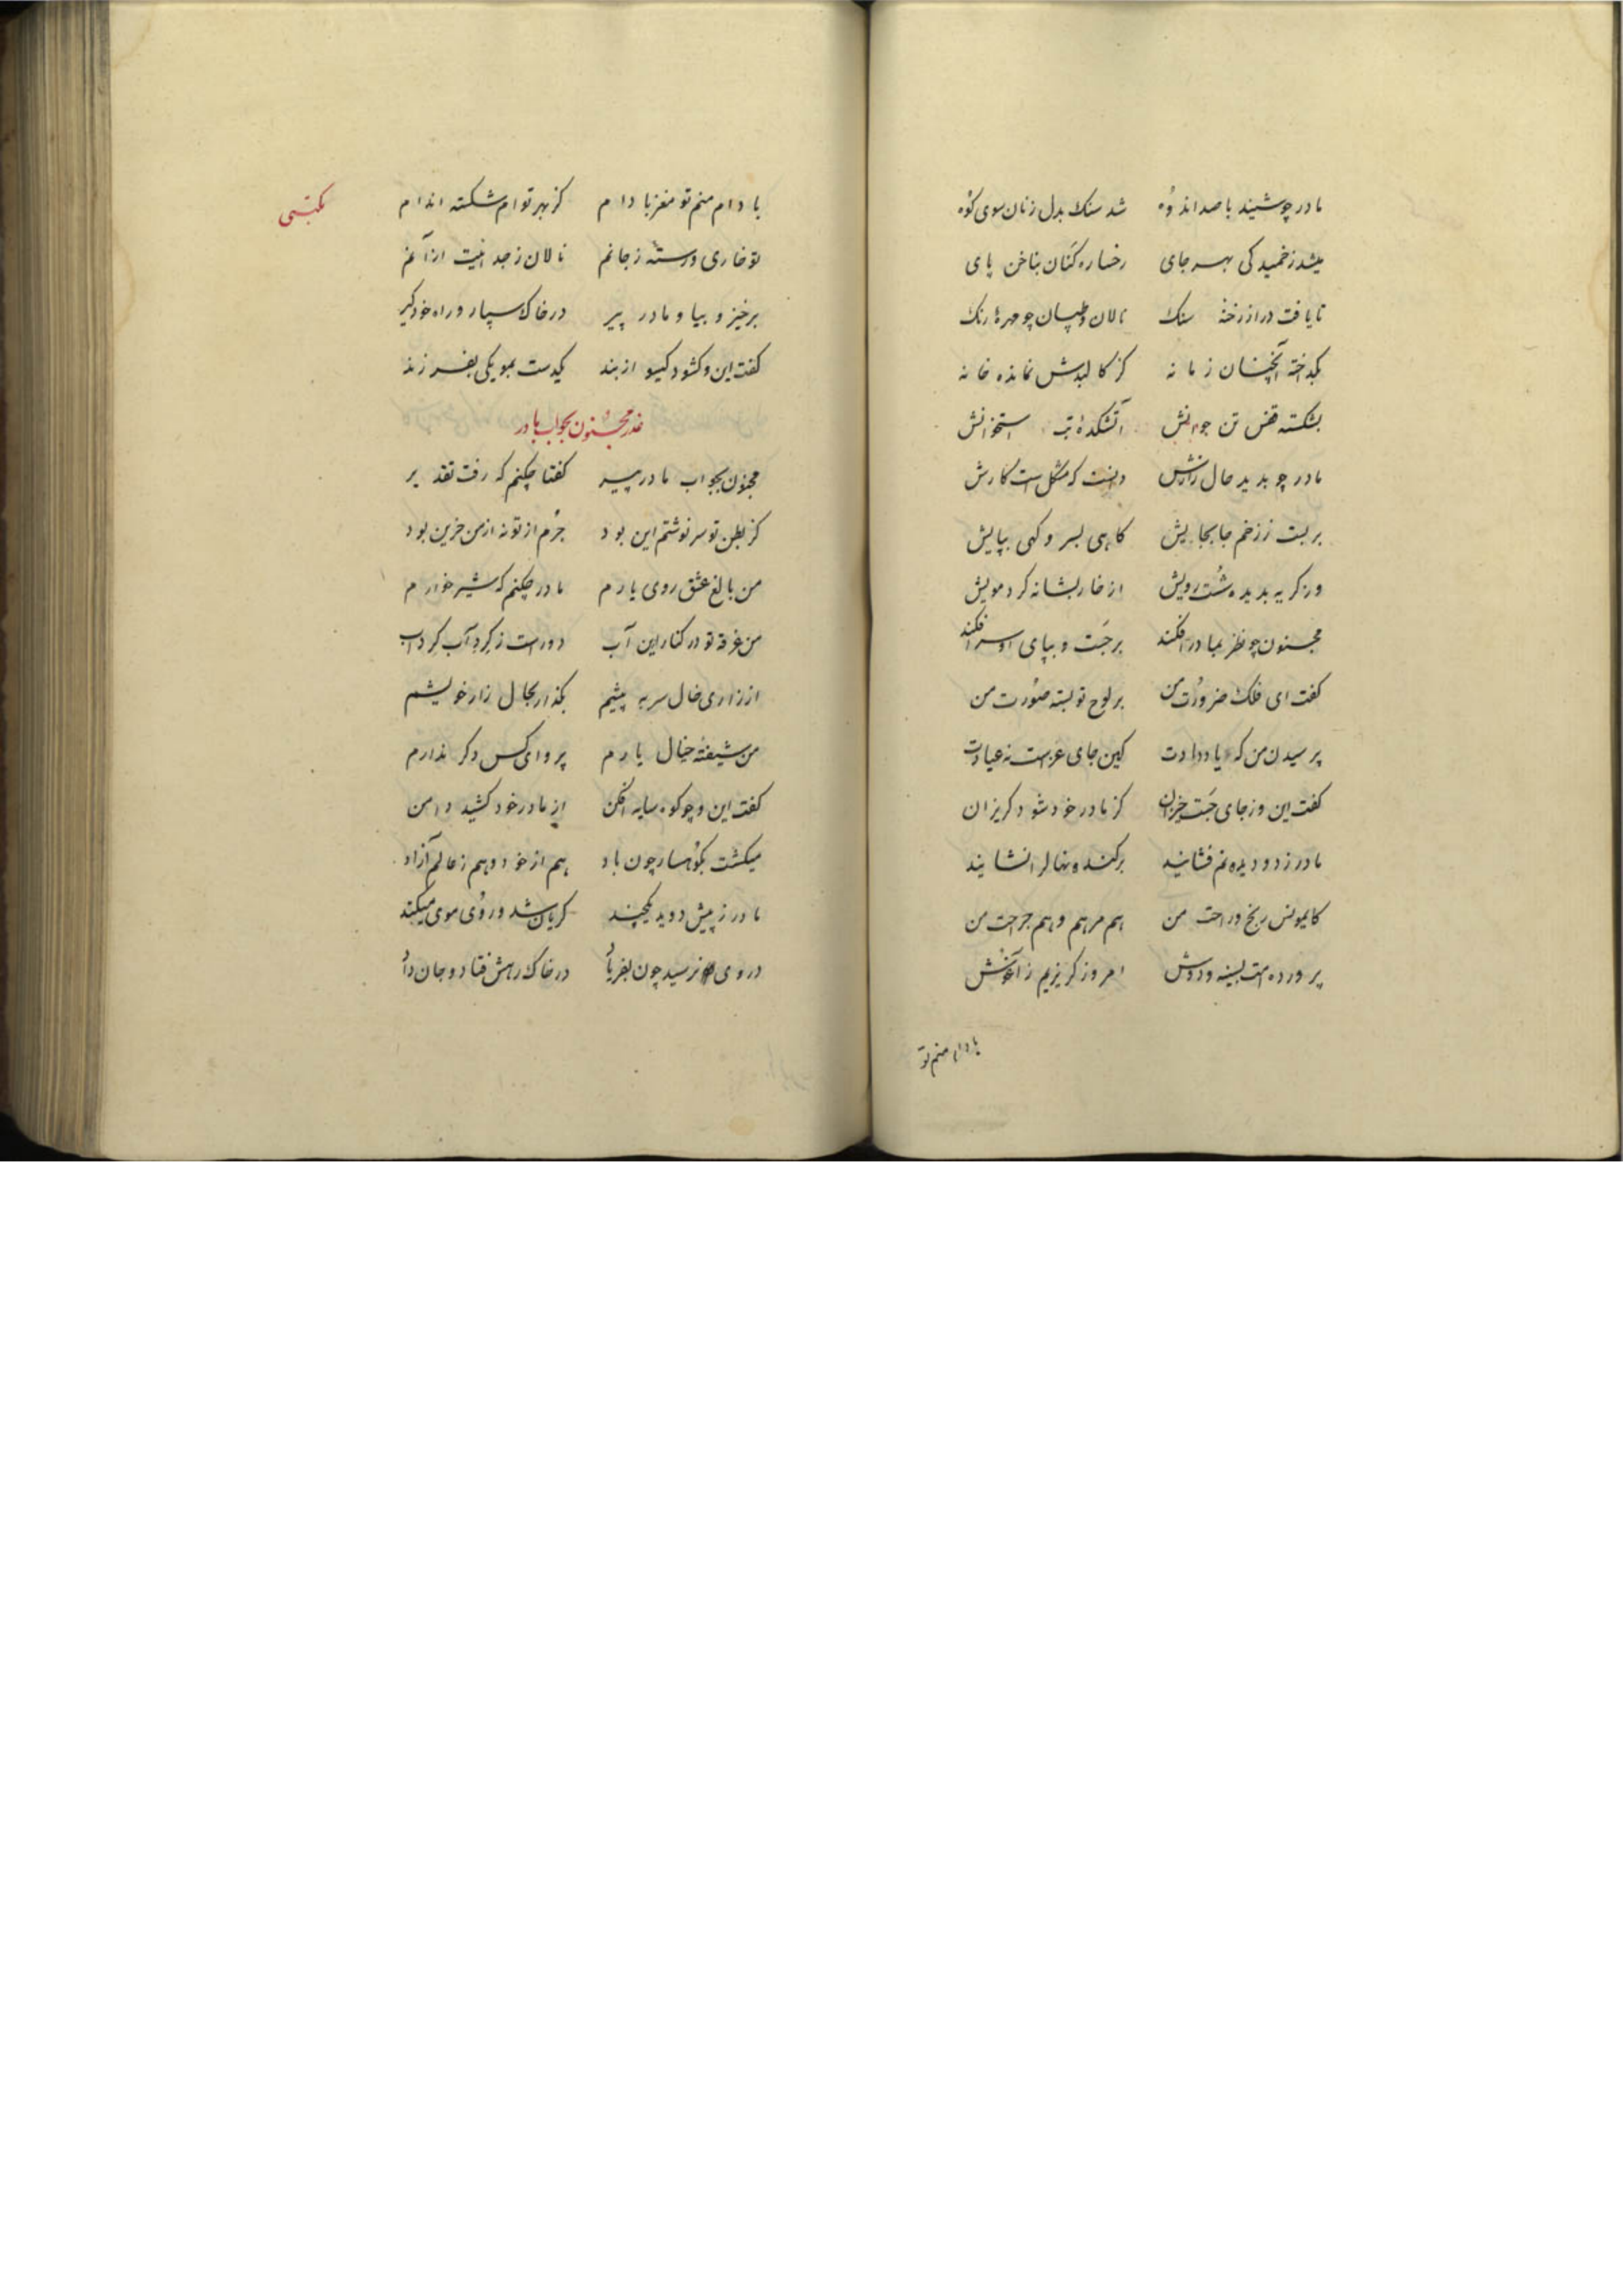 مادر چو شنید با صد اندوه شد سنک بدل زنان سوی کوه
میشد زخمیدکی بهر جای رخساره کنان بناخن پای
تا یافت در از رخنه سنک نالان و طپان چو مهره رنک
بکداخته آنچنان زمانه کز کالبدش نمانده خانه
بشکسته قفس تن جوانش آتشکده تب استخوانش
مادر چو بدید حال زارش دانست که مشکل است کارش
بربست ز زخم جابجایش کاهی بسر و کهی بپایش
وز کریه بدیده شست رویش از خار بشانه کرد مویش
مجنون چو نظر بمادر افکند برجست و بپای او سر افکند
کفت ای فلک ضرورت من بر لوح تو بسته صورت من
پرسیدن من که یاد دادت کین جای عزاست نه عیادت
کفت این وز جای جست خیزان کز مادر خود شود کریزان
مادر ز دو دیده نم فشانید برکنده نهال را نشانید
کای مونس رنج و راحت من هم مرهم و هم جراحت من
پرورده امت بسینه و دوش امروز کریزیم ز آغوش
بادام منم تو
مکتبی
بادام منم تو مغز بادام کز بهر توام شکسته اندام
تو خاری و رسته ز جانم نالان ز جدائیت ازآنم
برخیز و بیا و مادر پیر در خاک سپار و راه خود کیر
کفت این و کشود کیسو از بند یکدست بموی یکی بفرزند
عذر مجنون بجواب مادر
مجنون بجواب مادر پیر کفتا چکنم که رفت تقدیر
کز بطن تو سرنوشتم این بود جرم از تو نه از من حزین بود
من بالغ عشق روی یارم مادر چکنم که شیرخوارم
من غرقه تو در کنار این آب دور است ز کرد آب کرداب
از زاری خال سر به پیشم بکذار بحال زار خویشم
من شیفته خیال یارم پروای کس دکر ندارم
کفت این و چو کوه سایه افکن از مادر خود کشید دامن
میکشت بکوهسار چون باد هم از خود و هم ز عالم آزاد
مادر ز پیش دوید یکچند کریان شد و روی موی میکند
در وی نرسید چون بفریاد در خاک رهش فتاد و جان داد